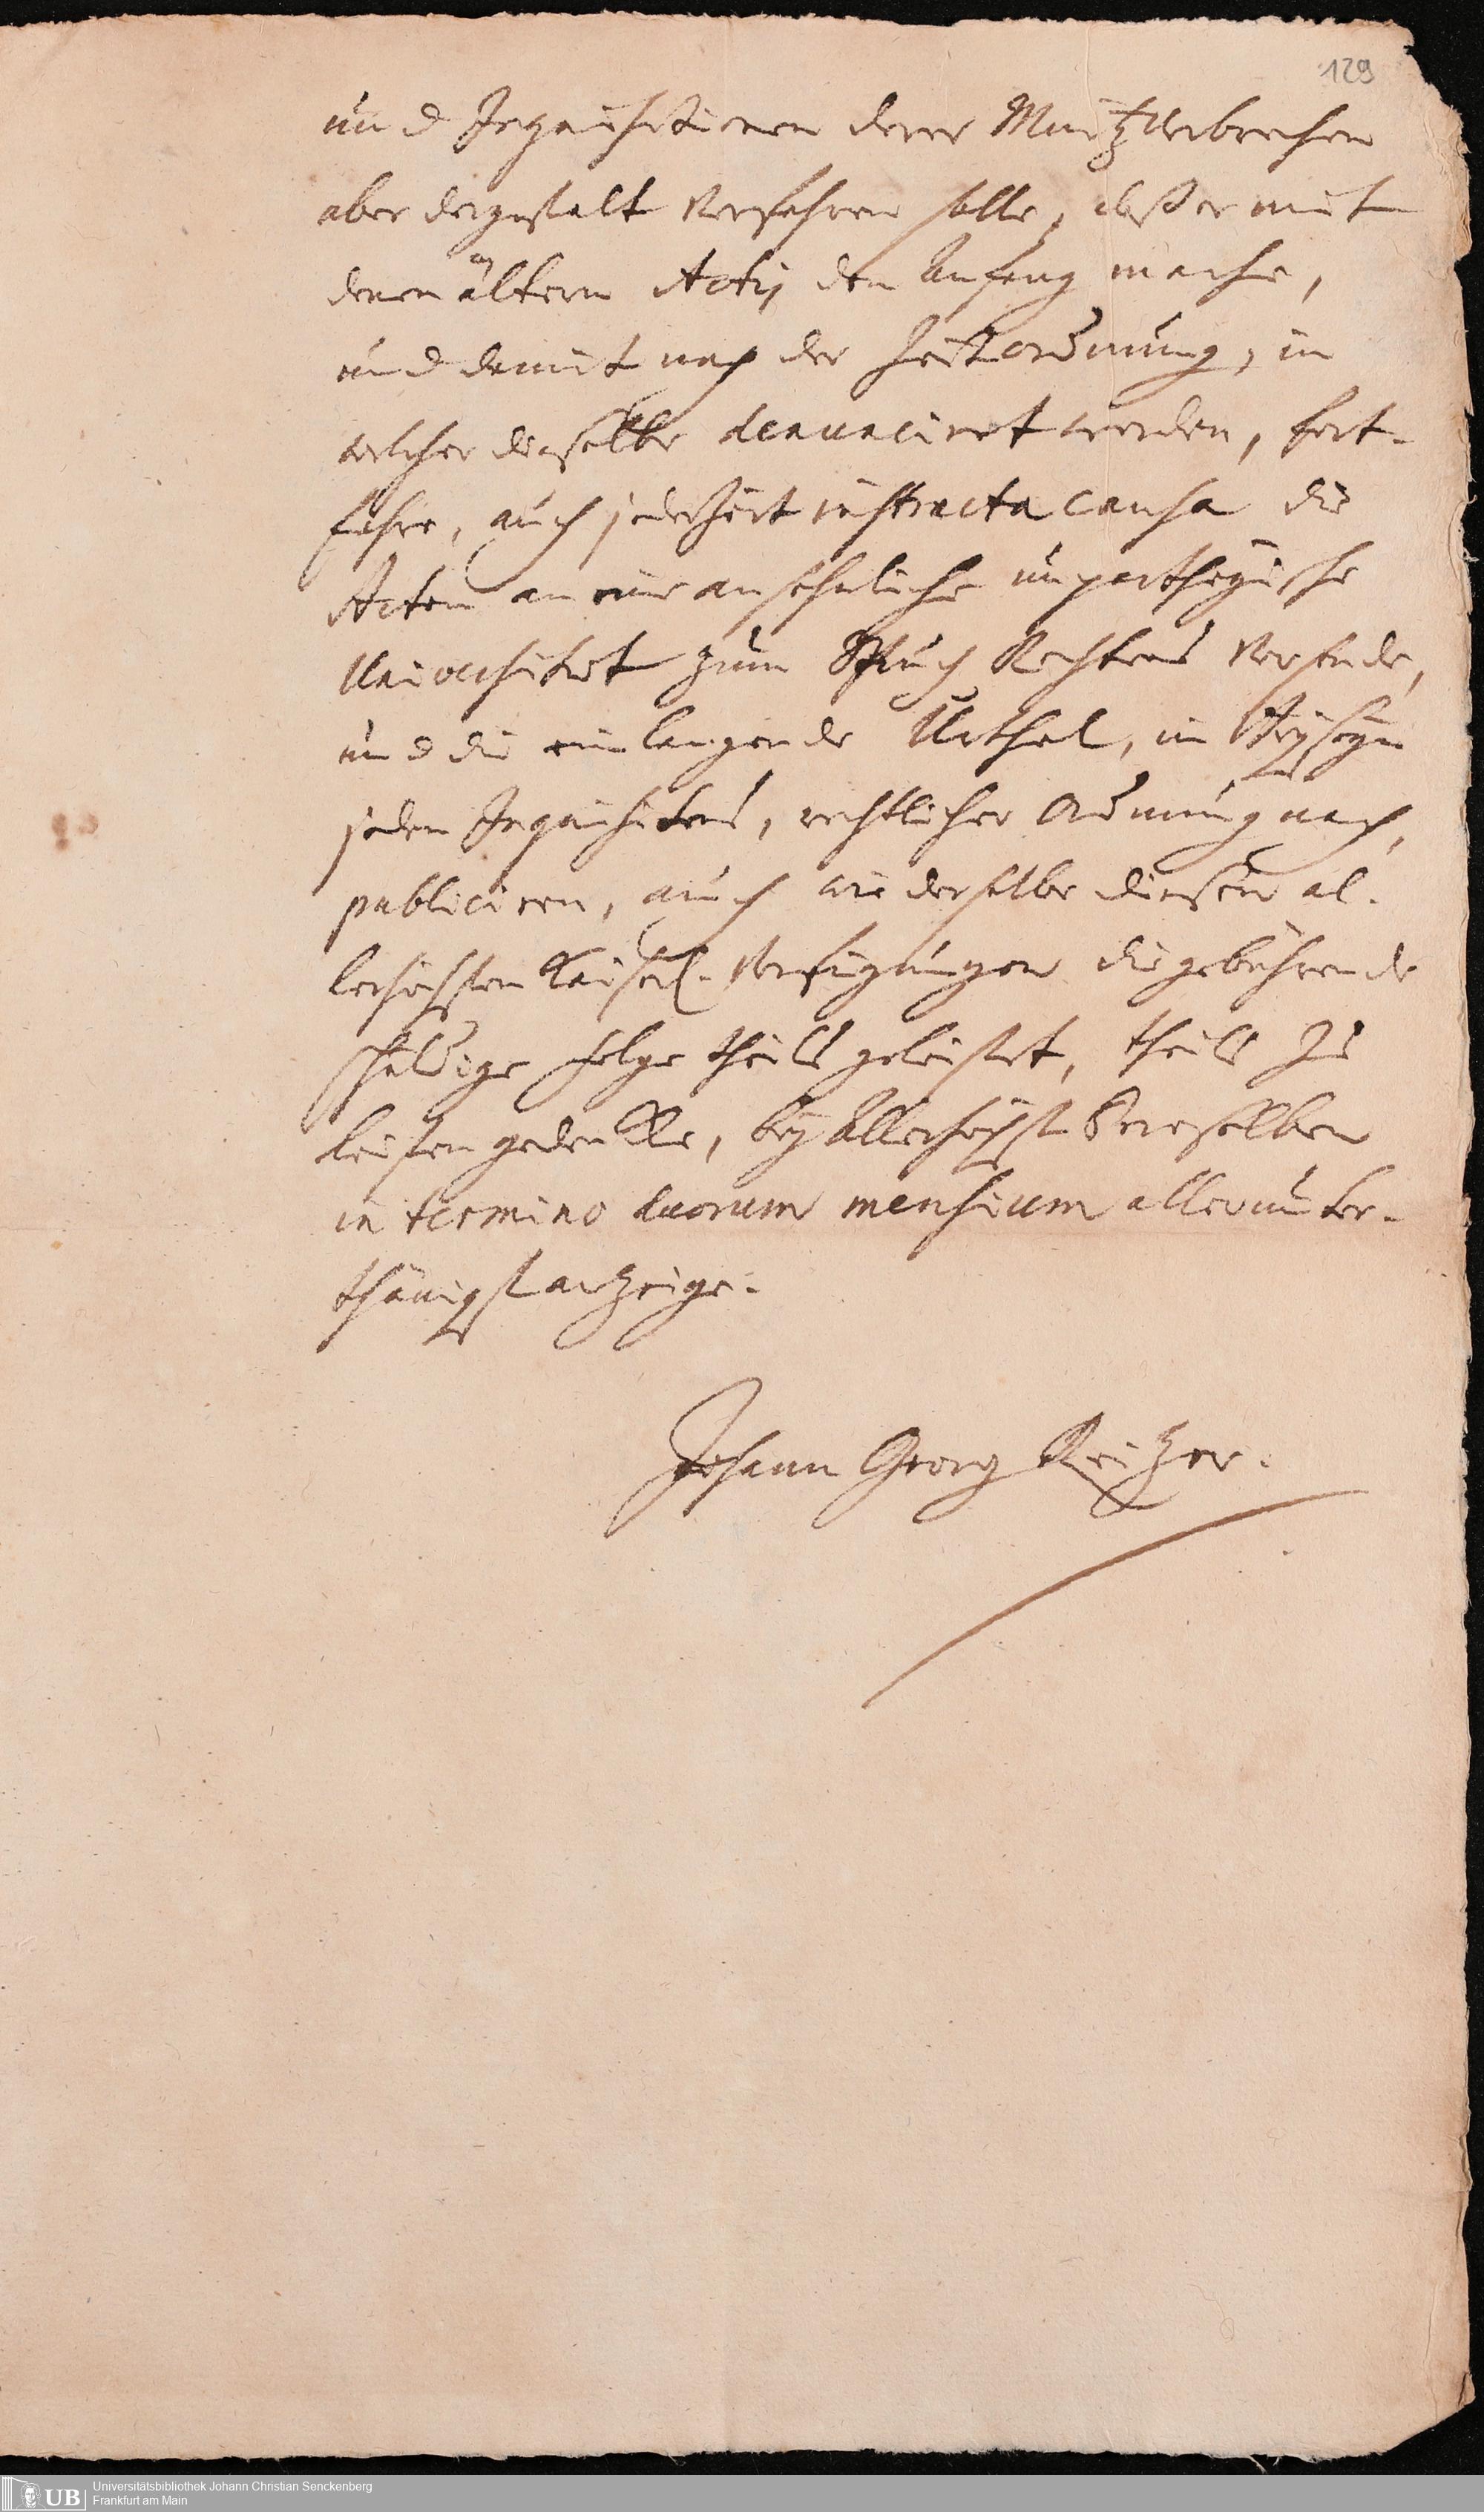 129
und Inquisitionen derer Müntzverbrechen
aber dergestalt verfahren solle, daß er mit
denen ältern Actis den Anfang mache,
und damit nach der Zeitordnung, in
welcher dieselbe denuncirt worden, fort-
fahre, auch jederzeit instructa causa die
Acten an eine ansehnliche unpartheyische
Universitaet zum Spruch Rechtens versende,
und die einlangende Urthel, in Beyseyn
jeden Inquisitens, rechtlicher Ordnung nach,
publiciren, auch wie derselbe diesen al-
lerhöchsten Kaiserl. Verfügungen die gebührende
schuldige Folge theils geleistet, theils zu
leisten gedencke, bey Allerhöchst Deroselben
in termino duorum mensium allerunter-
thänigst anzeige.
Johann Georg Reizer.
UB
Universitätsbibliothek Johann Christian Senckenberg
Frankfurt am Main